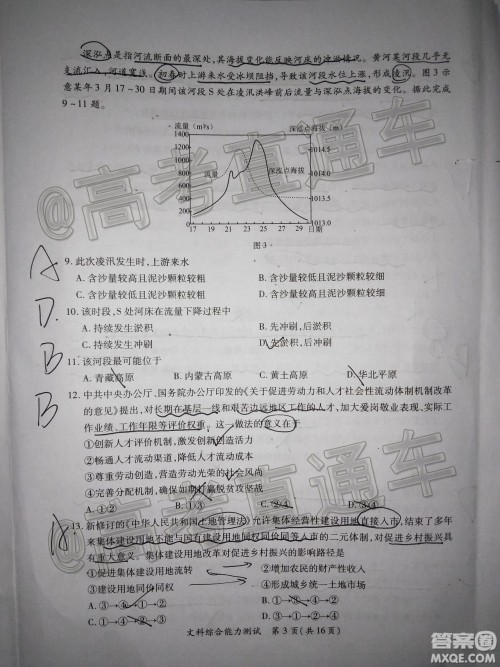 深泓点是指河流断面的最深处，其海拔变化能反映河床的冲淤情况。黄河某河段几乎无
支流汇入，河道宽浅。初春时上游来水受冰坝阻挡，导致该河段水位上涨，形成凌汛。图3示
意某年3月17~30日期间该河段S处在凌汛洪峰前后流量与深泓点海拔的变化。据此完成
9~11题。
流量(m³/s)
深泓点海拔(m)
1400
1200
1000
800
600
400
200
0
流量
深泓点海拔
1014.5
1014.0
1013.5
1013.0
17 19 21 23 25 27 29 日期
图3
A
9. 此次凌汛发生时，上游来水
A. 含沙量较高且泥沙颗粒较粗
B. 含沙量较低且泥沙颗粒较粗
C. 含沙量较高且泥沙颗粒较细
D. 含沙量较低且泥沙颗粒较细
D.
10. 该时段，S处河床在流量下降过程中
A. 持续发生淤积
B. 先冲刷，后淤积
C. 持续发生冲刷
D. 先淤积，后冲刷
B
11. 该河段最可能位于
A. 青藏高原
B. 内蒙古高原
C. 黄土高原
D. 华北平原
B
12. 中共中央办公厅、国务院办公厅印发的《关于促进劳动力和人才社会性流动体制机制改革
的意见》提出，对长期在基层一线和艰苦边远地区工作的人才，加大爱岗敬业表现、实际工
作业绩、工作年限等评价权重。这一做法的意义在于
①创新人才评价机制，激发创新创造活力
②畅通人才流动渠道，降低人才流动成本
③尊重劳动创造，营造劳动光荣的社会风尚
④完善分配机制，确保如期打赢脱贫攻坚战
A. ①②
B. ①③
C. ②④
D. ③④
13. 新修订的《中华人民共和国土地管理法》允许集体经营性建设用地直接入市，结束了多年
来集体建设用地不能与国有建设用地同权同价同等入市的二元体制，对促进乡村振兴具
有重大意义。集体建设用地改革对促进乡村振兴的影响路径是
①促进集体建设用地流转
②增加农民的财产性收入
③建设用地同价同权
④形成城乡统一土地市场
A. ③→④→①→②
B. ④→①→②→③
C. ③→①→④→②
文科综合能力测试 第3页(共16页)
@高考直通车
@高考直通车
答案圈
MXQE.COM